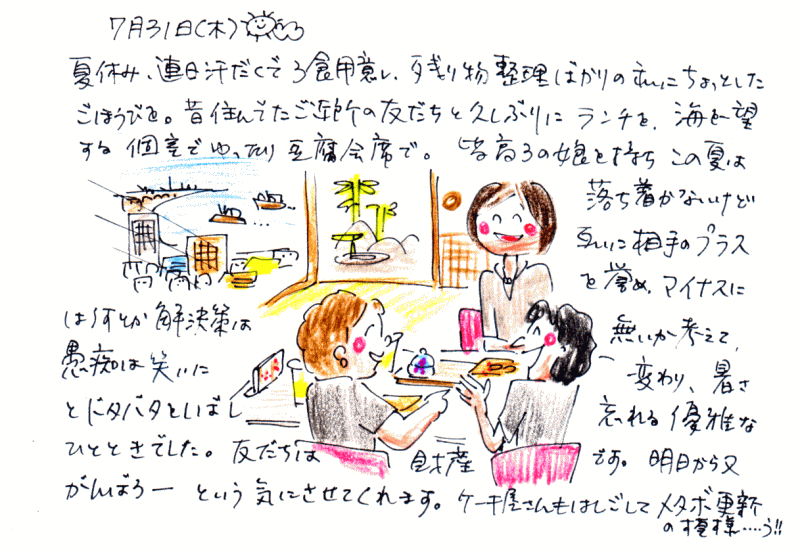 7月31日(木)
夏休み、連日汗だくで3食用意し、残り物整理ばかりの にちょっとした
ごほうびを。昔住んでたご近所の友だちと久しぶりにランチを、海を望
する個室でゆったり豆腐会席で。皆高3の娘を持ちこの夏は
落ち着かないけど
互いに相手のプラス
を誉め、マイナスに
は何とか解決策は 無いか考えて、
愚痴は笑いに 変わり、暑さ
とドタバタとしばし 忘れる優雅な
ひとときでした。友だちは 財産 です。明日から又
がんばろー という気にさせてくれます。ケーキ屋さんもはしごしてメタボ更新
の模様……う!!